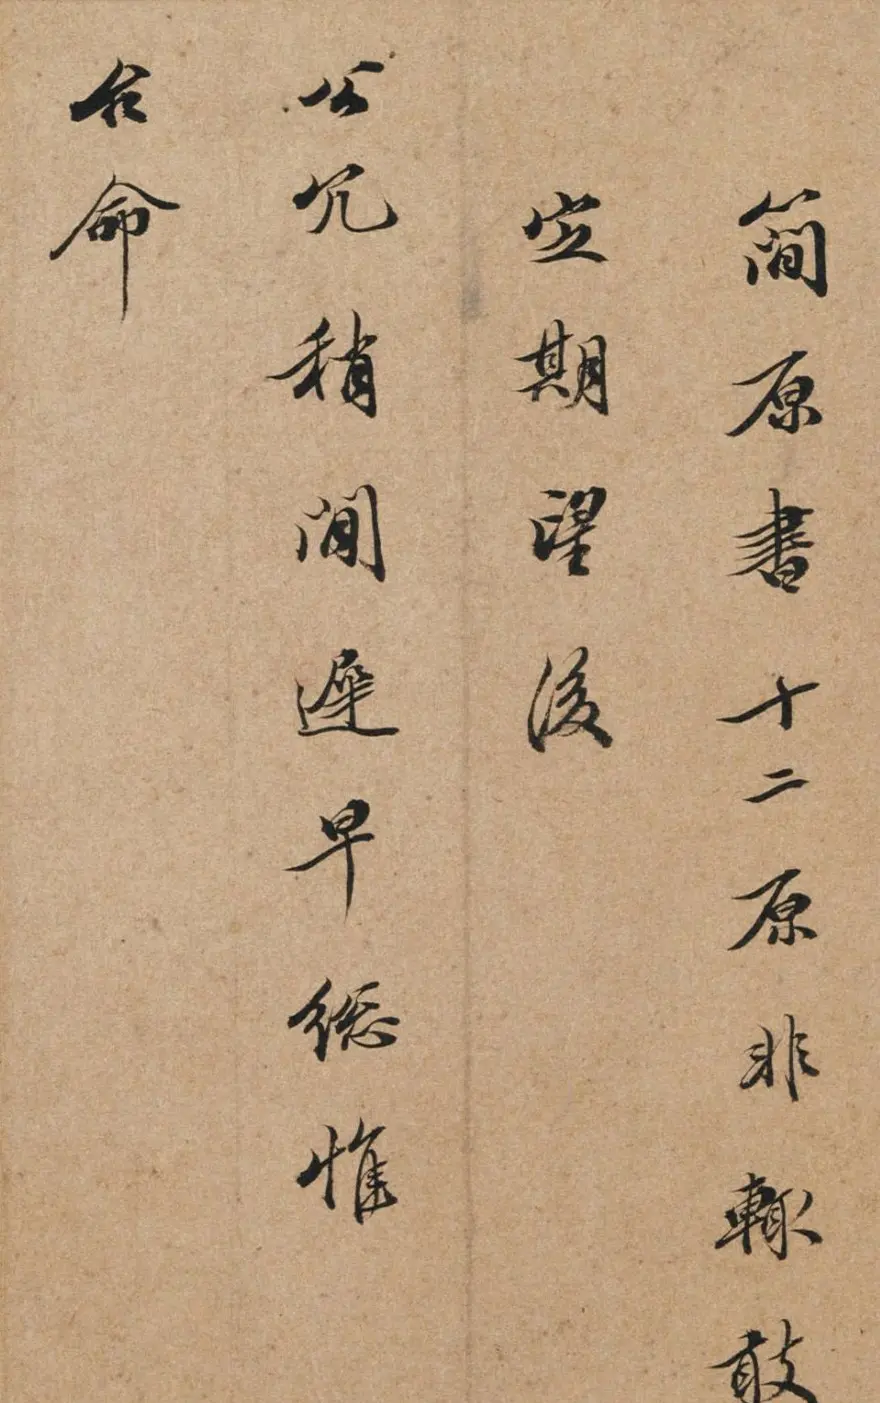 簡原書十二原非輙敢
定期望後
公冗稍間遲早總惟
台命